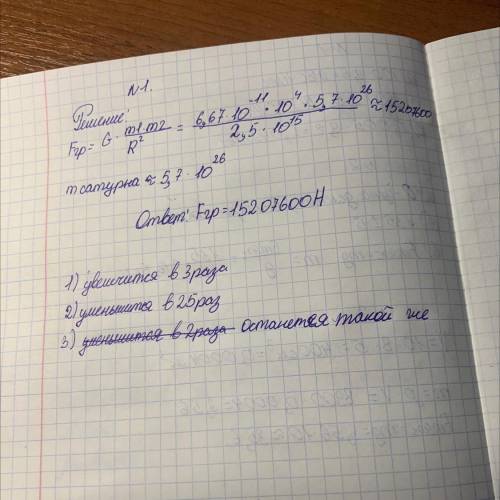 N1.
Решение:
Fгр = G · m1·m2 / R² = 6,67·10⁻¹¹ · 10⁴ · 5,7·10²⁶ / 2,5·10¹⁵ ≈ 15207600
m сатурна ≈ 5,7 · 10²⁶
Ответ: Fгр = 15207600Н
1) увеличится в 3 раза
2) уменьшится в 25 раз
3) уменьшится в 2 раза останется такой же